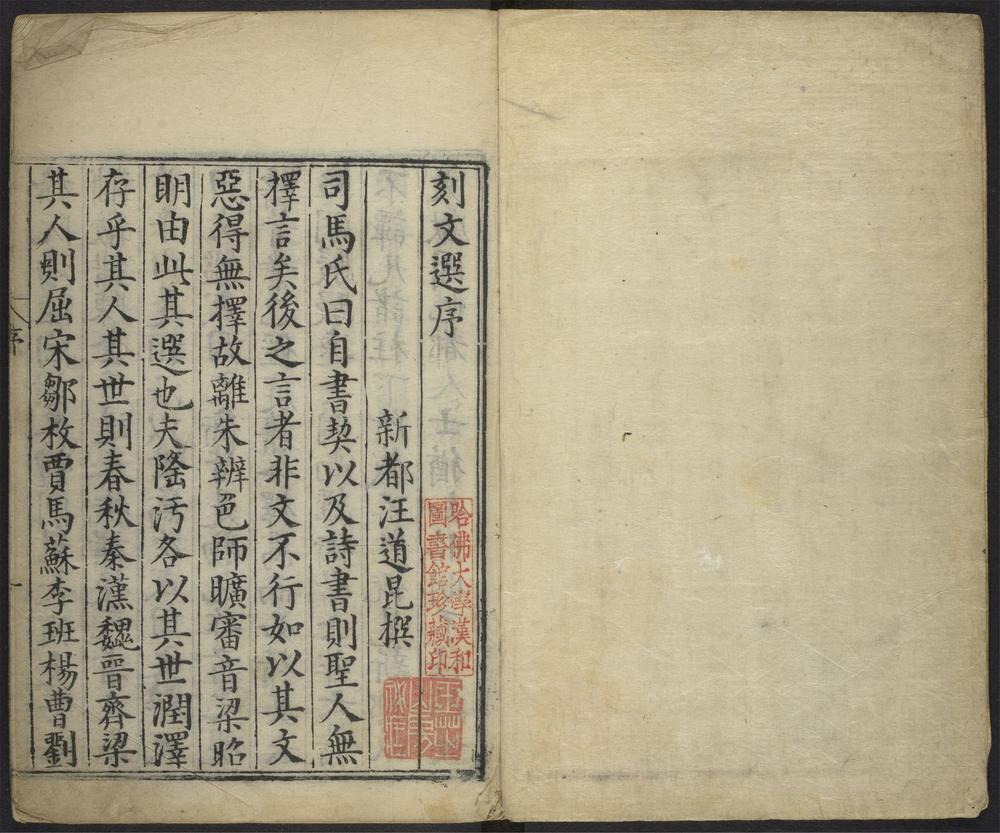 刻文選序
新都汪道昆撰
司馬氏曰自書契以及詩書則聖人無
擇言矣後之言者非文不行如以其文
惡得無擇故離朱辨色師曠審音梁昭
明由此其選也夫隆汚各以其世潤澤
存乎其人其世則春秋秦漢魏晉齊梁
其人則屈宋鄒枚賈馬蘇李班楊曹劉
序
一
哈佛大學漢和
圖書館珍藏印